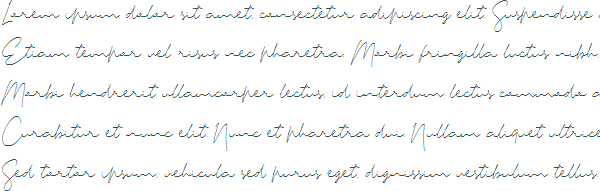 Lorem ipsum dolor sit amet, consectetur adipiscing elit. Suspendisse
Etiam tempor vel risus nec pharetra. Morbi fringilla luctus nibh,
Morbi hendrerit ullamcorper lectus, id interdum lectus commodo a
Curabitur et nunc elit. Nunc et pharetra dui. Nullam aliquet ultrice
Sed tortor ipsum, vehicula sed purus eget, dignissim vestibulum tellus.